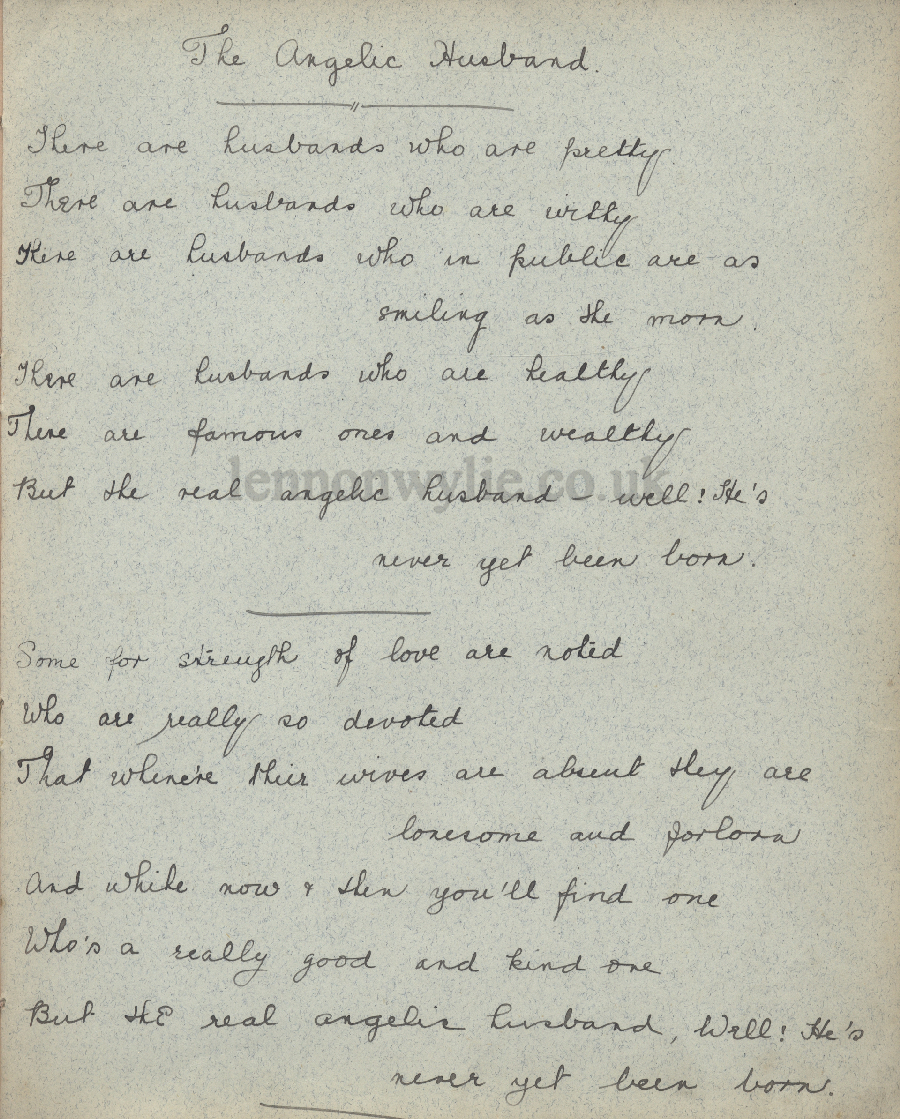 The Angelic Husband.
There are husbands who are pretty
There are husbands who are witty
There are husbands who in public are as
smiling as the morn.
There are husbands who are healthy
There are famous ones and wealthy
But the real angelic husband - well! He's
never yet been born.
Some for strength of love are noted
Who are really so devoted
That whene're thier wives are absent they are
lonesome and forlorn
And while now & then you'll find one
Who's a really good and kind one
But the real angelic husband, Well! He's
never yet been born.
lennonwylie.co.uk